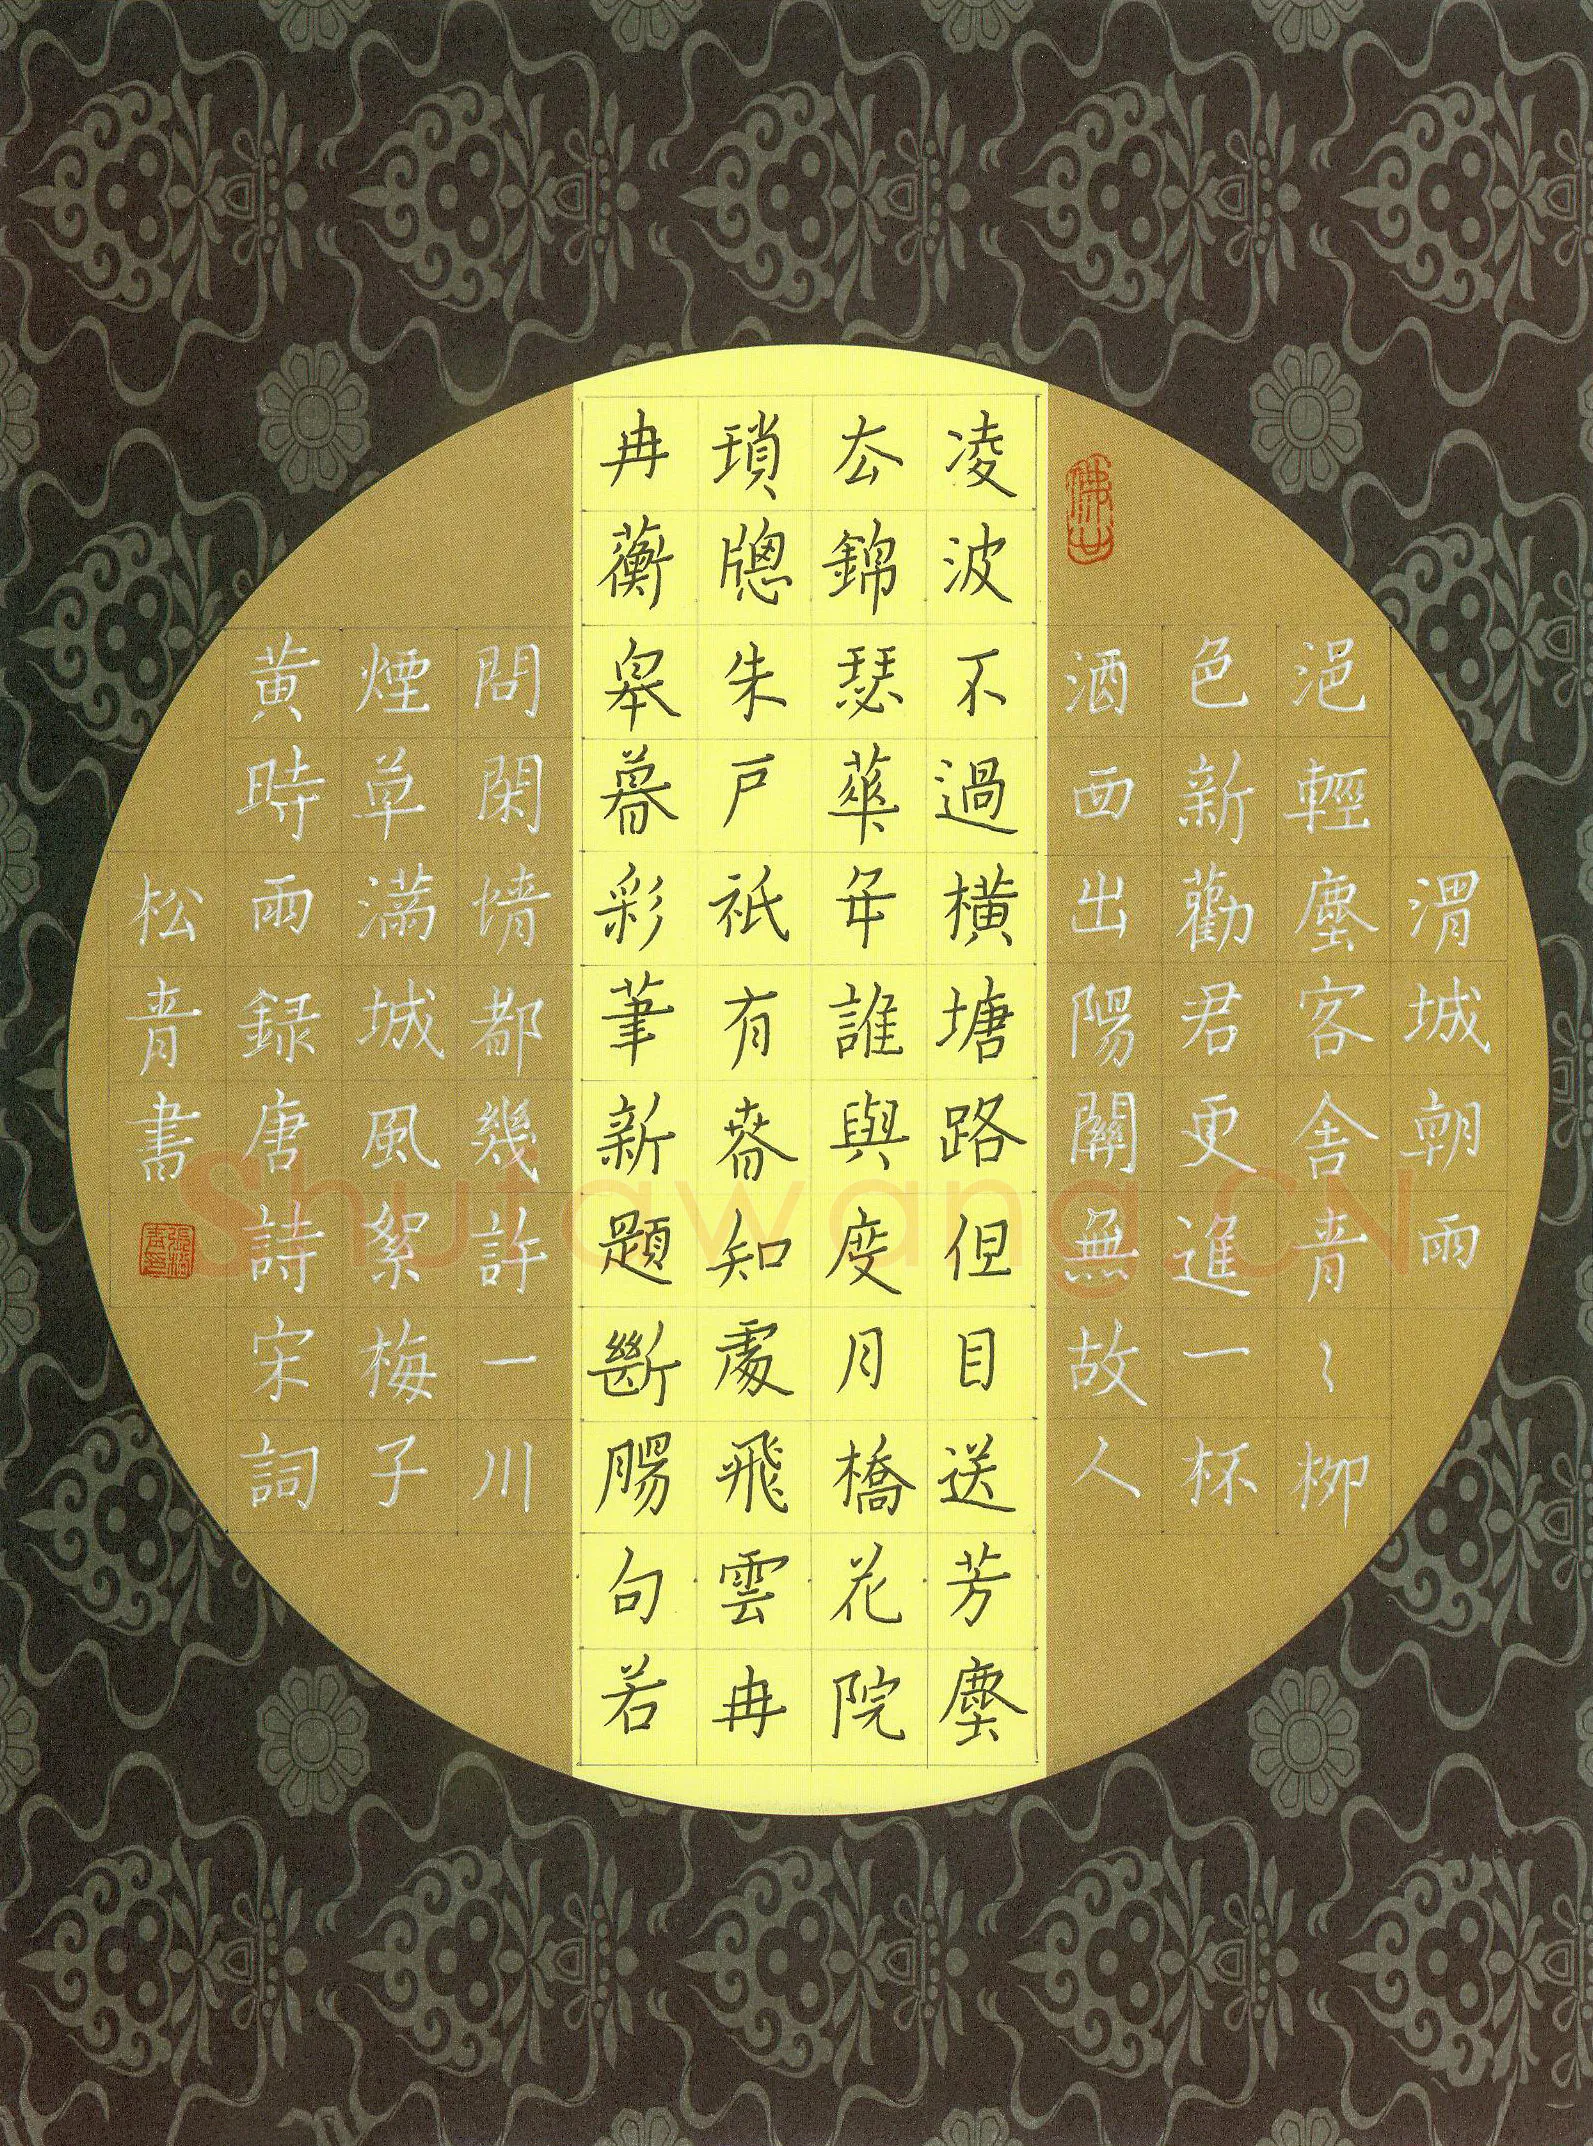 渭城朝雨
浥輕塵客舍青〻柳
色新勸君更進一杯
酒西出陽關無故人
凌波不過橫塘路但目送芳塵
去錦瑟華年誰與度月橋花院
瑣牕朱戸祇有春知處飛雲冉
冉蘅皋暮彩筆新題斷腸句若
問閑情都幾許一川
煙草滿城風絮梅子
黃時雨録唐詩宋詞
松青書
Shufawang.CN